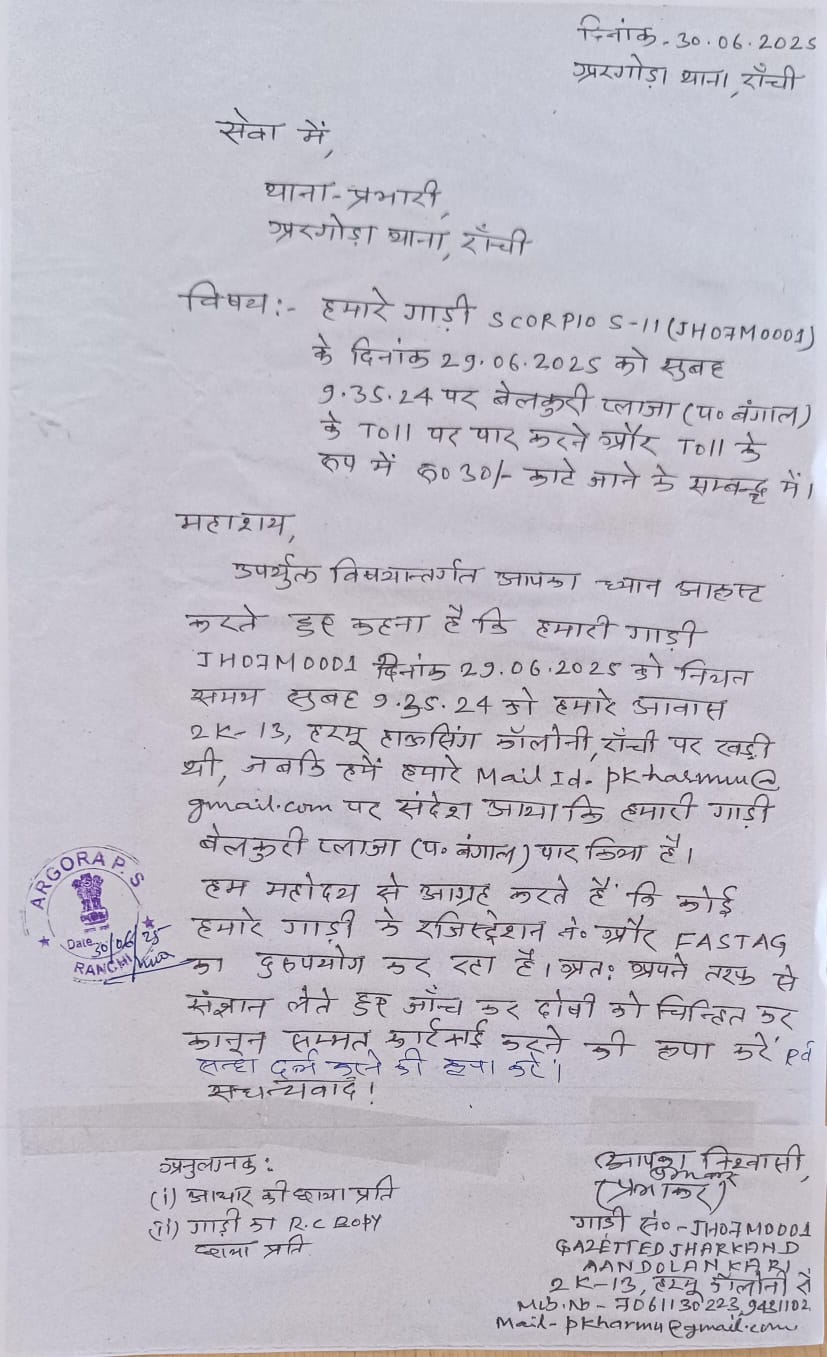 दिनांक - 30.06.2025
अरगोड़ा थाना, राँची
सेवा में,
थाना-प्रभारी,
अरगोड़ा थाना, राँची
विषय:- हमारे गाड़ी SCORPIO S-11 (JH07M0001)
के दिनांक 29.06.2025 को सुबह
9.35.24 पर बेलकुरी प्लाजा (प० बंगाल)
के Toll पर पार करने और Toll के
रूप में रु० 30/- काटे जाने के सम्बन्द्ध में।
महाशय,
उपर्युक्त विषयान्तर्गत आपका ध्यान आकृस्ट
करते हुए कहना है कि हमारी गाड़ी
JH07M0001 दिनांक 29.06.2025 को नियत
समय सुबह 9.35.24 को हमारे आवास
2K-13, हरमू हाऊसिंग कॉलोनी, राँची पर खड़ी
थी, जबकि हमें हमारे Mail Id. pkharmu@
gmail.com पर संदेश आया कि हमारी गाड़ी
बेलकुरी प्लाजा (प० बंगाल) पार किया है।
हम महोदय से आग्रह करते हैं कि कोई
हमारे गाड़ी के रजिस्ट्रेशन नं० और FASTAG
का दुरुपयोग कर रहा है। अतः अपने तरफ से
संज्ञान लेते हुए जाँच कर दोषी को चिन्हित कर
कानून सम्मत कार्रवाई करने की कृपा करें एवं
सन्हा दर्ज करने की कृपा करें।
सधन्यवाद!
ARGORA P.S
Date 30/06/25
RANCHI
अनुलग्नक:
(i) आधार की छाया प्रति
(ii) गाड़ी का R.C COPY
छाया प्रति
आपका विश्वासी,
(प्रभाकर)
गाड़ी सं० - JH07M0001
GAZETTED JHARKHAND
AANDOLANKARI
2K-13, हरमू कॉलोनी रो
Mob.No - 7061130223, 9431102
Mail- pkharmu@gmail.com